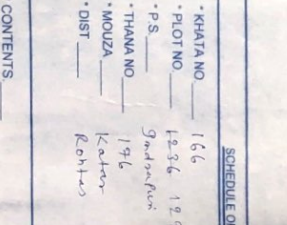 SCHEDULE O
* KHATA NO 166
* PLOT NO 1236 12
* P.S. Indrapuri
* THANA NO 196
* MOUZA Katar
* DIST Rohtas
CONTENTS